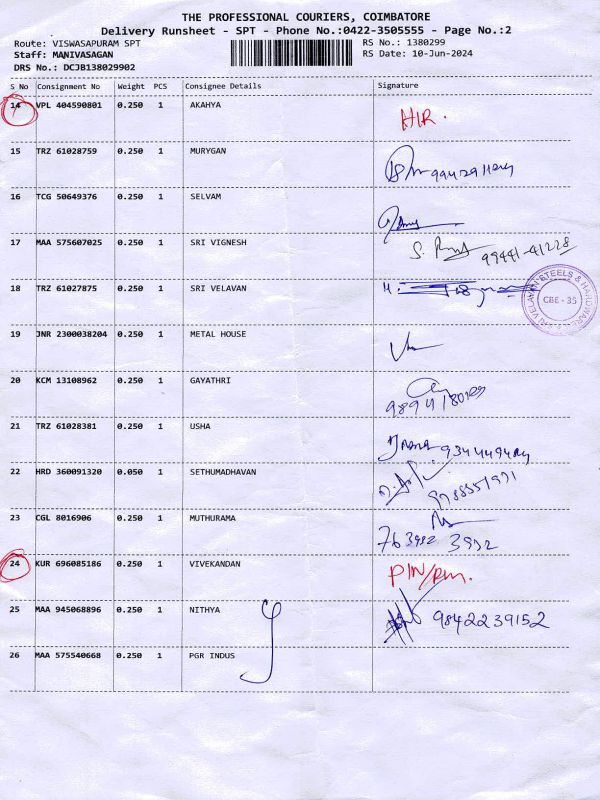 THE PROFESSIONAL COURIERS, COIMBATORE
Delivery Runsheet - SPT - Phone No.:0422-3505555 - Page No.:2
Route: VISWASAPURAM SPT RS No.: 1380299
Staff: MANIVASAGAN RS Date: 10-Jun-2024
DRS No.: DCJB138029902
S No Consignment No Weight PCS Consignee Details Signature
14 VPL 404590801 0.250 1 AKAHYA
HIR.
15 TRZ 61028759 0.250 1 MURYGAN
16 TCG 50649376 0.250 1 SELVAM
17 MAA 575607025 0.250 1 SRI VIGNESH
99441-41228
18 TRZ 61027875 0.250 1 SRI VELAVAN
SRI VELAVAN STEELS & HARDWARE
CBE - 35
19 JNR 2300038204 0.250 1 METAL HOUSE
20 KCM 13108962 0.250 1 GAYATHRI
21 TRZ 61028381 0.250 1 USHA
22 HRD 360091320 0.050 1 SETHUMADHAVAN
23 CGL 8016906 0.250 1 MUTHURAMA
763992 3992
24 KUR 696085186 0.250 1 VIVEKANDAN
25 MAA 945068896 0.250 1 NITHYA
9842239152
26 MAA 575540668 0.250 1 PGR INDUS